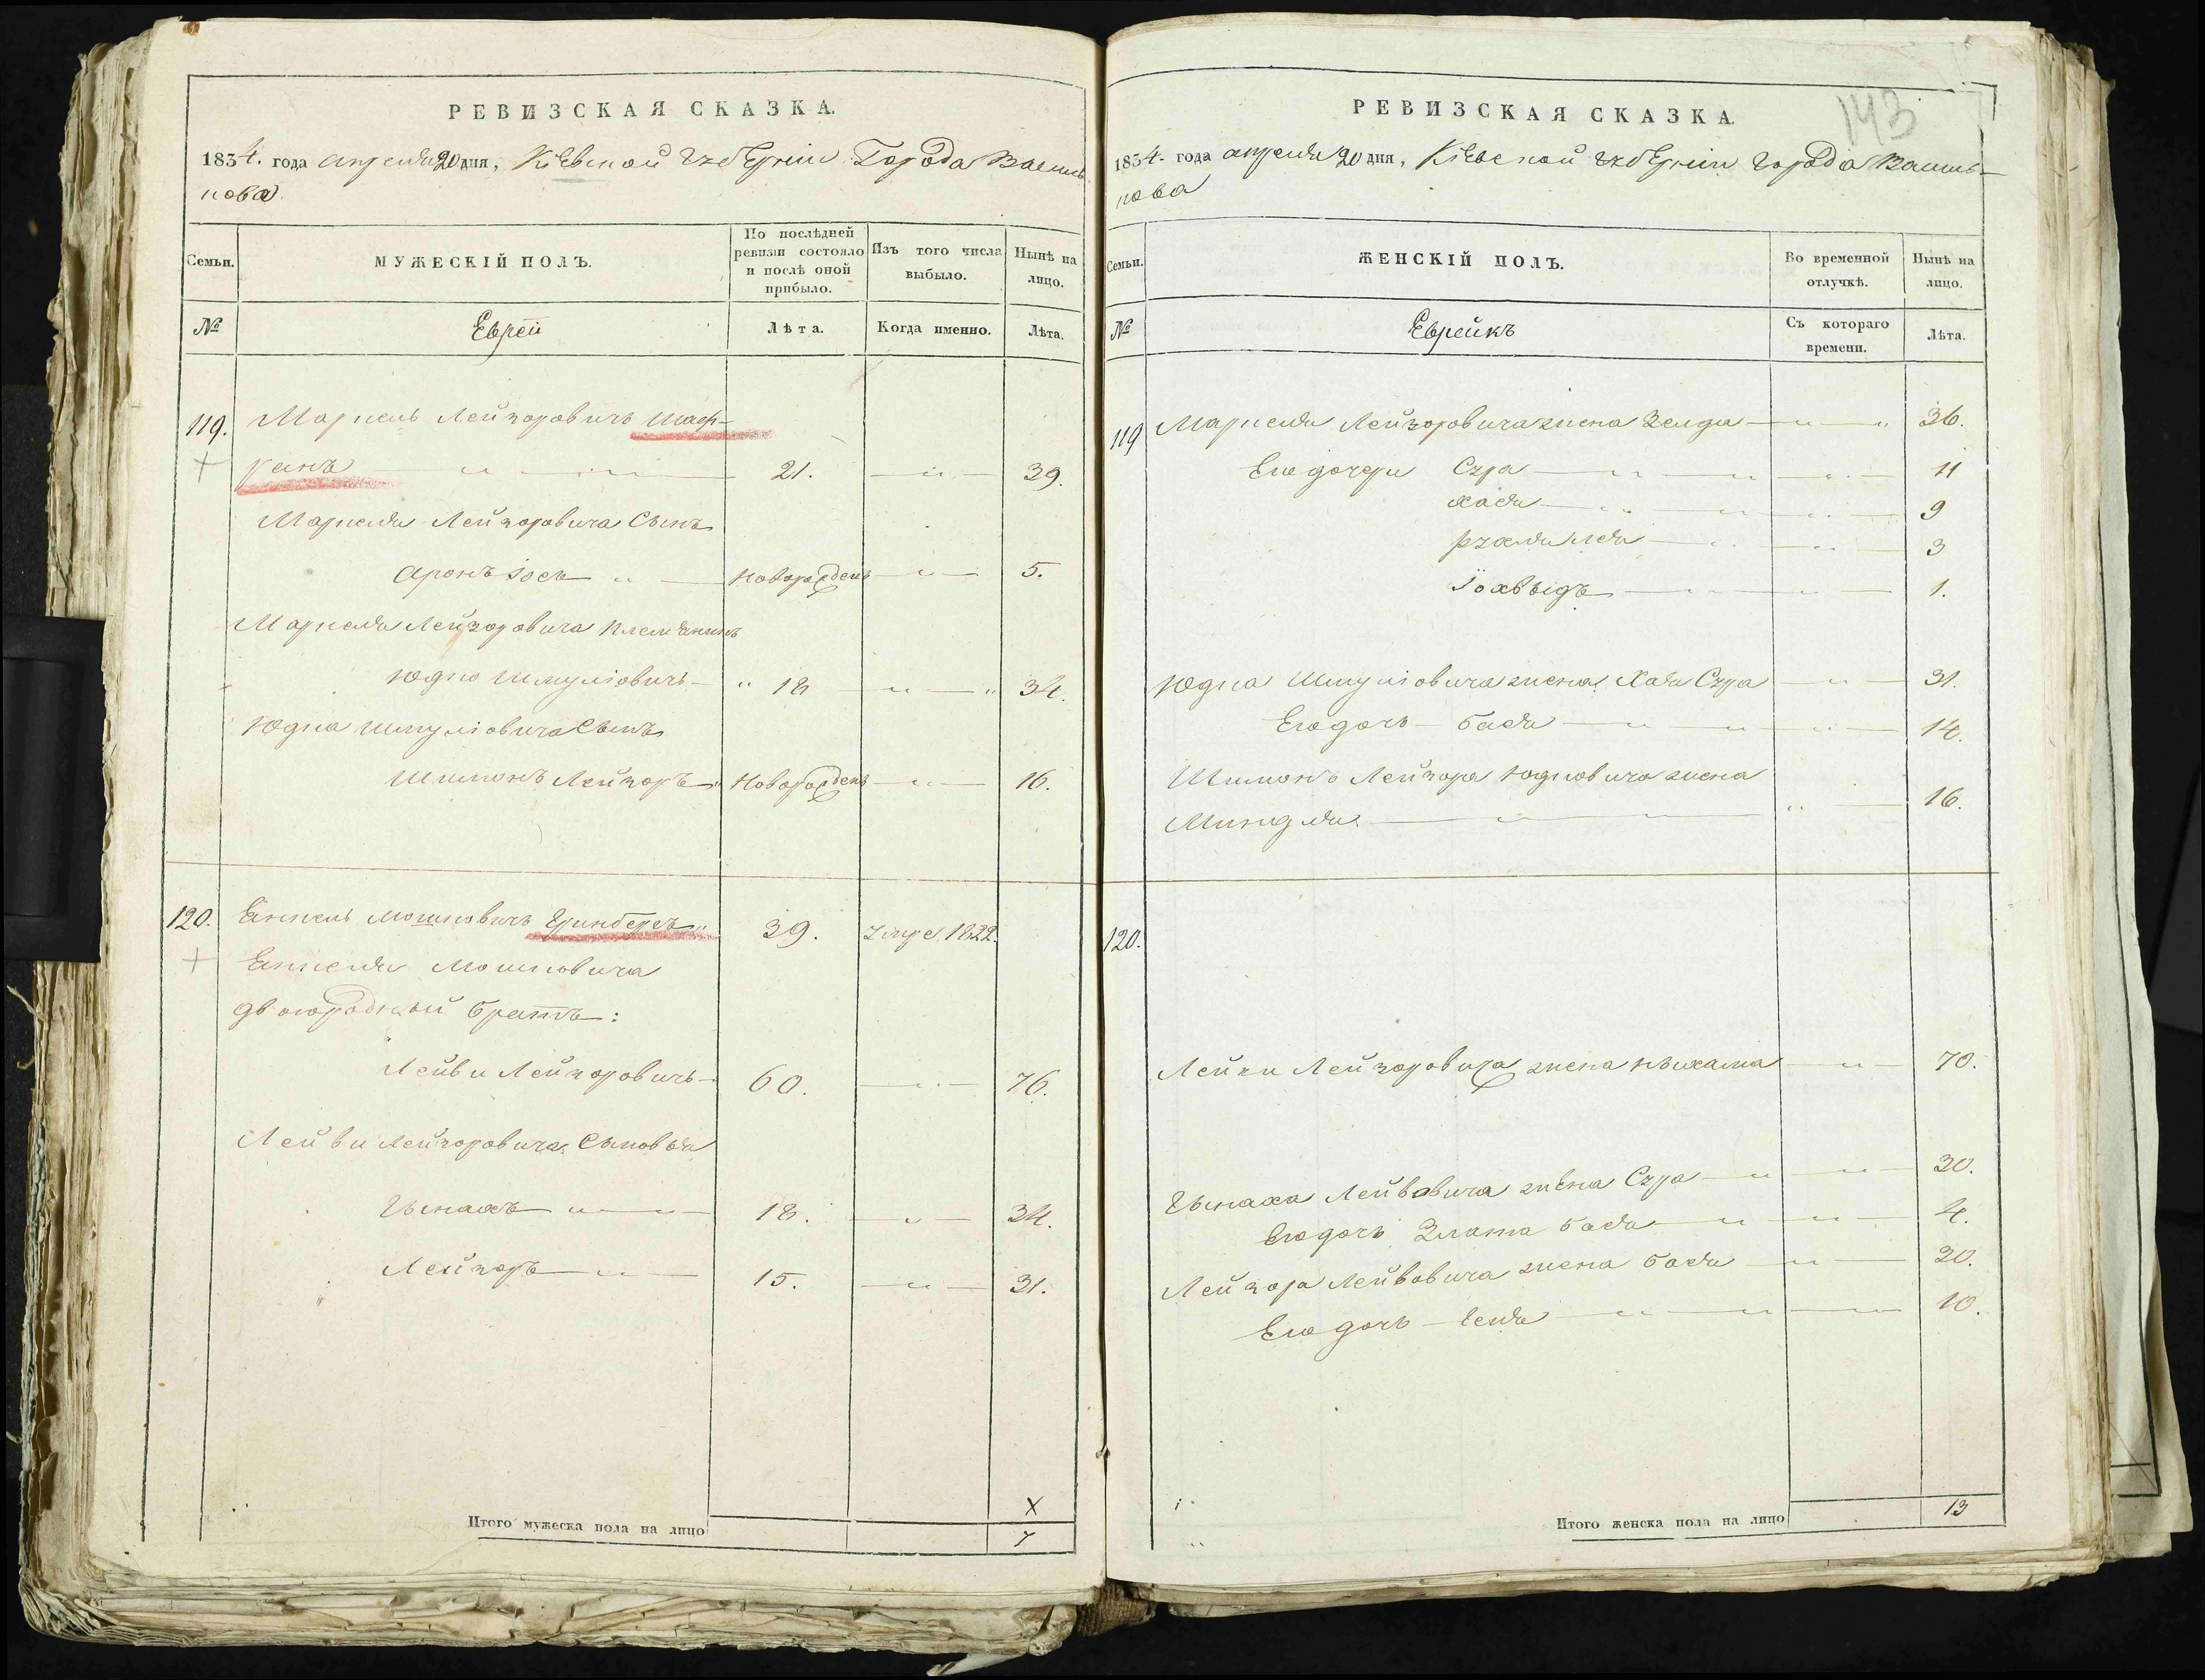 РЕВИЗСКАЯ СКАЗКА.
1834. года апреля 20 дня, Кіевской губерніи Города Василь
кова
Семьи.
МУЖЕСКІЙ ПОЛЪ.
По послѣдней ревизіи состояло и послѣ оной прибыло.
Изъ того числа выбыло.
Нынѣ на лицо.
№
Еврей
Лѣта.
Когда именно.
Лѣта.
119. Маркель Лейзоровичъ Шаф-
канъ 21. 39.
Маркеля Лейзоровича Сынъ
Аронъ Іось Новорожденъ 5.
Маркеля Лейзоровича племянникъ
Юдко Шмуліовичъ 18 34.
Юдка Шмуліовича Сынъ
Шимонъ Лейзоръ Новорожденъ 16.
120. Янкель Мошковичъ Гринбергъ 39. 1822.
Янкеля Мошковича
двоюродный братъ:
Лейви Лейзоровичъ 60. 76.
Лейви Лейзоровича Сыновья
18. 34.
Лейзоръ 15. 31.
X
Итого мужеска пола на лицо
7
143
РЕВИЗСКАЯ СКАЗКА.
1834. года апреля 20 дня, Кіевской губерніи Города Василь-
кова
Семьи.
ЖЕНСКІЙ ПОЛЪ.
Во временной отлучкѣ.
Нынѣ на лицо.
№
Еврейкъ
Съ котораго времени.
Лѣта.
119 Маркеля Лейзоровича жена Зелда 36.
Его дочери Сура 11
Хася 9
Рухля Лея 3
Іохвыдъ 1.
Юдка Шмуліовича жена Хая Сура 31.
Его дочь Бася 14.
Шимонъ Лейзора Юдковича жена
Миндля 16.
120.
Лейви Лейзоровича жена Ныхама 70.
Лейвовича жена Сура 30.
Его дочь Злата Бася 4.
Лейзора Лейвовича жена Бася 20.
Его дочь 10.
Итого женска пола на лицо
13